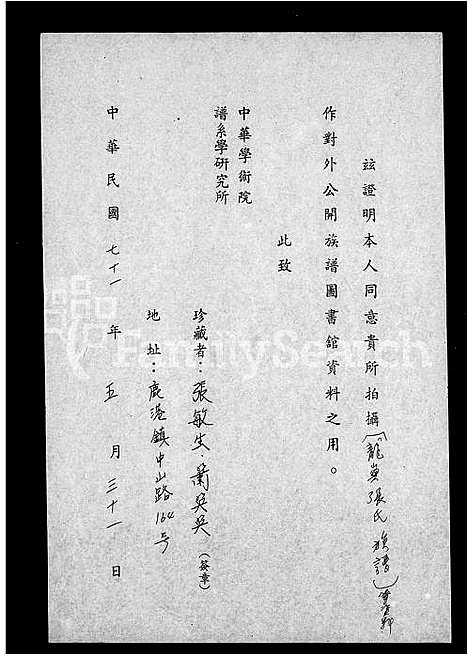 茲證明本人同意貴所拍攝(龍□張氏族譜)
作對外公開族譜圖書館資料之用。
此致
中華學術院
譜系學研究所
珍藏者:張敏生.蕭吳吳(簽章)
地址:鹿港鎮中山路164号
中華民國七十一年五月三十一日
FamilySearch